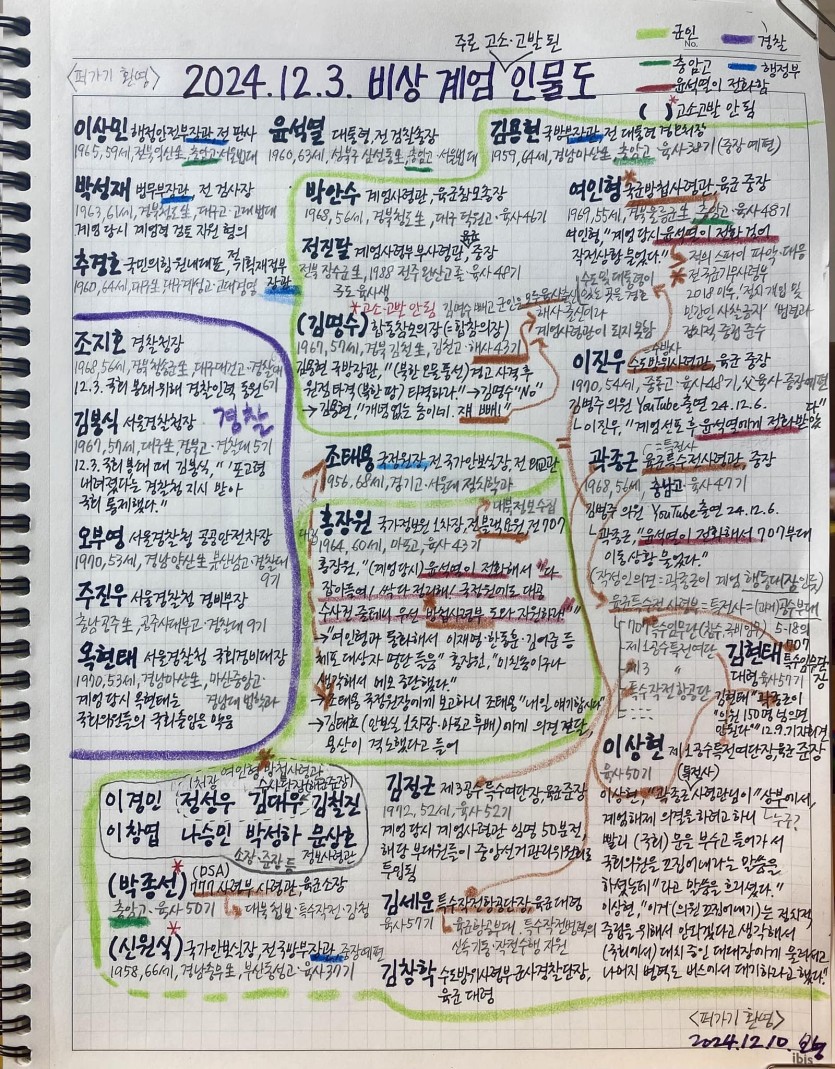 주로 고소·고발된
군인
경찰
충암고
행정부
윤석열이 전화함
( )* 고소고발 안 됨
<퍼가기 환영>
2024.12.3. 비상 계엄 인물도
이상민 행정안전부장관, 전 판사
1965, 59세, 전북익산生, 충암고·서울법대
윤석열 대통령, 전 검찰총장
1960, 63세, 성북구 삼선동生, 충암고·서울법대
김용현 국방부장관, 전 대통령 경호처장
1959, 64세, 경남마산生, 충암고·육사38기 (중장 예편)
박성재 법무부장관, 전 검사장
1963, 61세, 경북청도生, 대구고·고대법대
계엄 당시 계엄령 검토 지원 혐의
추경호 국민의힘 원내대표, 전 기획재정부
장관
1960, 64세, 대구生, 대구계성고·고대경영
조지호 경찰청장
1968, 56세, 경북청송生, 대구대건고·경찰대
6기
12.3. 국회 봉쇄 위해 경찰인력 동원
경찰
김봉식 서울경찰청장
1967, 57세, 대구生, 경북고·경찰대 5기
12.3. 국회 봉쇄 때 김봉식, "포고령
내려졌다는 경찰청 지시 받아
국회 통제했다."
오부명 서울경찰청 공공안전차장
1970, 53세, 경남양산生, 부산남고·경찰대
9기
주진우 서울경찰청 경비부장
충남공주生, 공주사대부고·경찰대 9기
목현태 서울경찰청 국회경비대장
1970, 53세, 경남마산生, 마산중앙고·
경남대 법학과
계엄 당시 목현태는
국회의원들의 국회출입을 막음
박안수 계엄사령관, 육군참모총장
1968, 56세, 경북청도生, 대구 덕원고·육사46기
정진팔 계엄사령부부사령관, 육군 중장
전북 장수군生, 1988 전주 완산고 졸·육사48기
*고소·고발 안 됨
(김명수) 합동참모의장(=합참의장)
1967, 57세, 경북 김천生, 김천고·해사43기
김용현 국방장관, "(북한 오물풍선) 경고 사격 후
원점타격(북한 땅) 타격하라." → 김명수 "No"
→ 김용현, "개념없는 놈이네. 쟤 빼!"
김명수 빼고 군인은 모두 육사출신
해사 출신이라
계엄사령관이 되지 못함
여인형 국군방첩사령관, 육군 중장
1969, 55세, 경북울릉군生, 충암고·육사48기
여인형, "계엄 당시 윤석열이 전화 걸어
작전상황 물었다."
적의 스파이 파악·대응
전 국군기무사령부
2018 이후, '정치개입 및
민간인 사찰금지' 법령과
정치적 중립 준수
수도 및 대통령이
있는 곳 등 경호
수방사
이진우 수도방위사령관, 육군 중장
1970, 54세, 중동고·육사48기, 父 육사 중장예편
김병주 의원 YouTube 출연 24.12.6.
ㄴ이진우, "계엄선포 후 윤석열에게 전화 받았다"
특전사
곽종근 육군특수전사령관, 중장
1968, 56세, 충남고·육사47기
김병주 의원 YouTube 출연 24.12.6.
ㄴ곽종근, "윤석열이 전화해서 707부대
이동상황 물었다."
(작성인의견: 곽종근이 계엄 행동대장인듯)
육군특수전사령부=특전사=(과거)공수부대
5·18의
707특수임무단
제1공수특전여단
제3 〃
특수작전항공단
조태용 국정원장, 전 국가안보실장, 전 외교관
1956, 68세, 경기고·서울대 정치학과
대북정보수집
홍장원 국가정보원 1차장, 전 블랙요원, 전 707
1964, 60세, 마포고, 육사43기
홍장원, "(계엄 당시) 윤석열이 전화해서 '다
잡아들여! 싹 다 정리해! 국정원에도 대공
수사권 줄테니 우선 방첩사령부 도와 지원하라'"
→ "여인형과 통화해서 이재명·한동훈·김어준 등
체포 대상자 명단 들음" 홍장원, "미친놈이구나
생각해서 메모 중단했다."
→ 조태용 국정원장에게 보고하니 조태용 "내일 얘기합시다"
→ 김태효(안보실 1차장·마포고 후배)에게 의견 전달,
용산이 격노했다고 들어
김현태 707 특수임무단장
대령, 육사57기
김현태 "곽종근이
'의원 150명 넘으면
안된다'" 12.9.기자회견
이상현 제1공수특전여단장, 육군 준장
육사50기
(특전사)
이상현, "곽종근사령관님이 '상부에서,
ㄴ누구?
계엄해제 의결을 하려고 하니
빨리 (국회) 문을 부수고 들어가서
국회의원을 끄집어내라'는 말씀을
하셨는데"라고 말씀을 흐리셨다."
이상현, "이거(의원 끄집어내기)는 정치적
중립을 위해서 안되겠다고 생각해서
(국회에서) 대치 중인 대대장에게 물러서고
나머지 병력도 버스에서 대기하라고 했다."
여인형 방첩사령관
1처장
수사단장(해군준장)
이경민 정성우 김대우 김철진
이창엽 나승민 박성하 문상호
소장·준장 등
정보사령관
(박종선)* (DSA) 777사령부 사령관, 육군소장
충암고·육사50기
대북첩보·특수작전·감청
(신원식)* 국가안보실장, 전 국방부장관, 중장예편
1958, 66세, 경남통영生, 부산동성고·육사37기
김정근 제3공수특수여단장, 육군준장
1972, 52세, 육사52기
계엄 당시 계엄사령관 임명 50분 전,
해당 부대원들이 중앙선거관리위원회로
투입됨
김세운 특수작전항공단장, 육군대령
육사57기
ㄴ육군항공부대, 특수작전병력의
신속기동·작전수행 지원
김창학 수도방위사령부 군사경찰단장,
육군 대령
<퍼가기 환영>
2024.12.10.
ibis